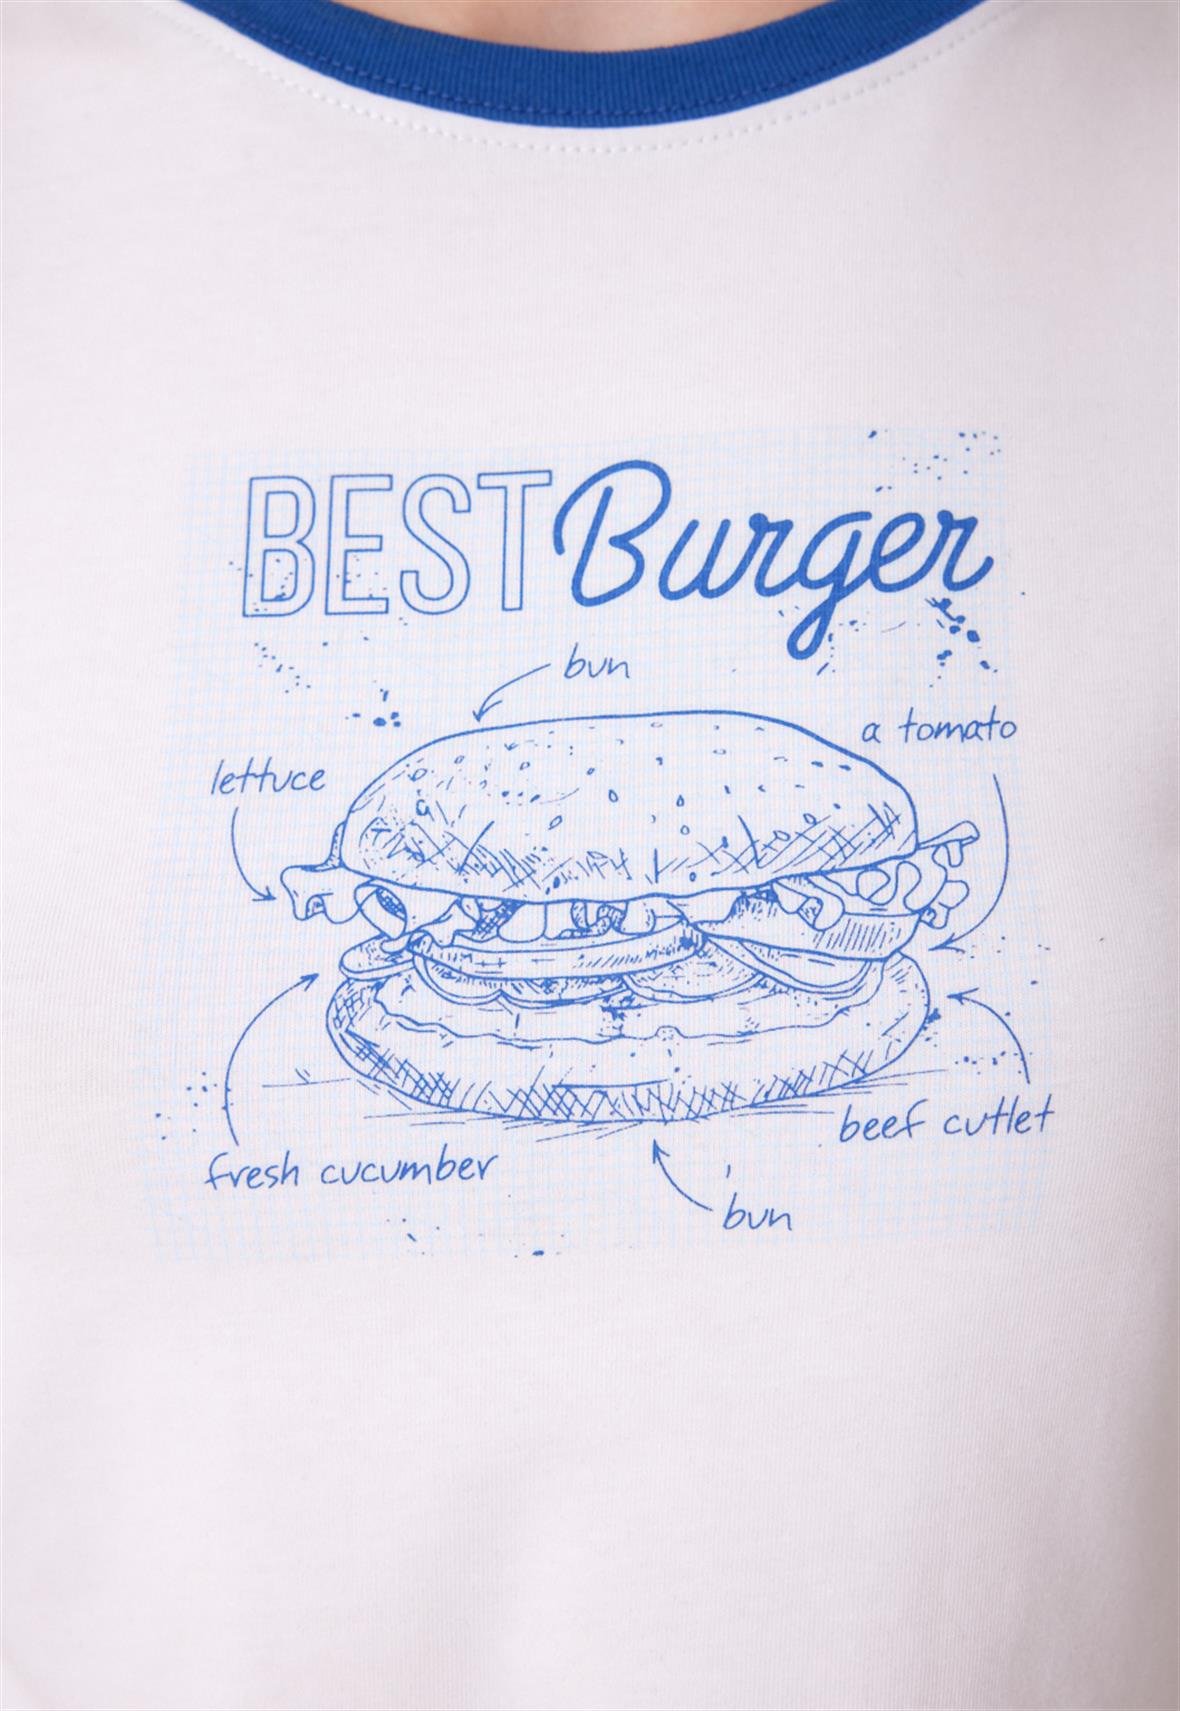 BEST Burger
bun
a tomato
lettuce
beef cutlet
fresh cucumber
bun